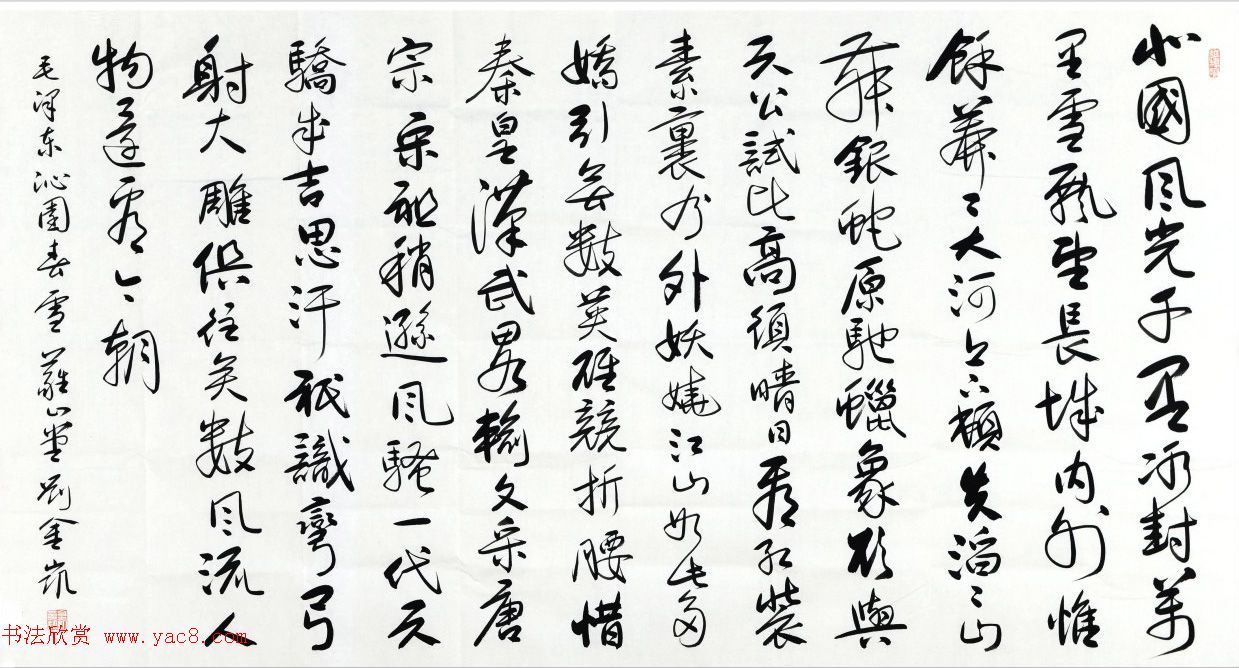 北國風光千里冰封萬
里雪飄望長城内外惟
餘莽〻大河上下頓失滔〻山
舞銀蛇原馳蠟象欲與
天公試比高須晴日看紅裝
素裹分外妖嬈江山如此多
嬌引無數英雄競折腰惜
秦皇漢武畧輸文采唐
宗宋祖稍遜風騷一代天
驕成吉思汗祇識彎弓
射大雕俱往矣數風流人
物還看今朝
毛泽东沁園春雪山堂刘金凯
书法欣赏 www.yac8.com